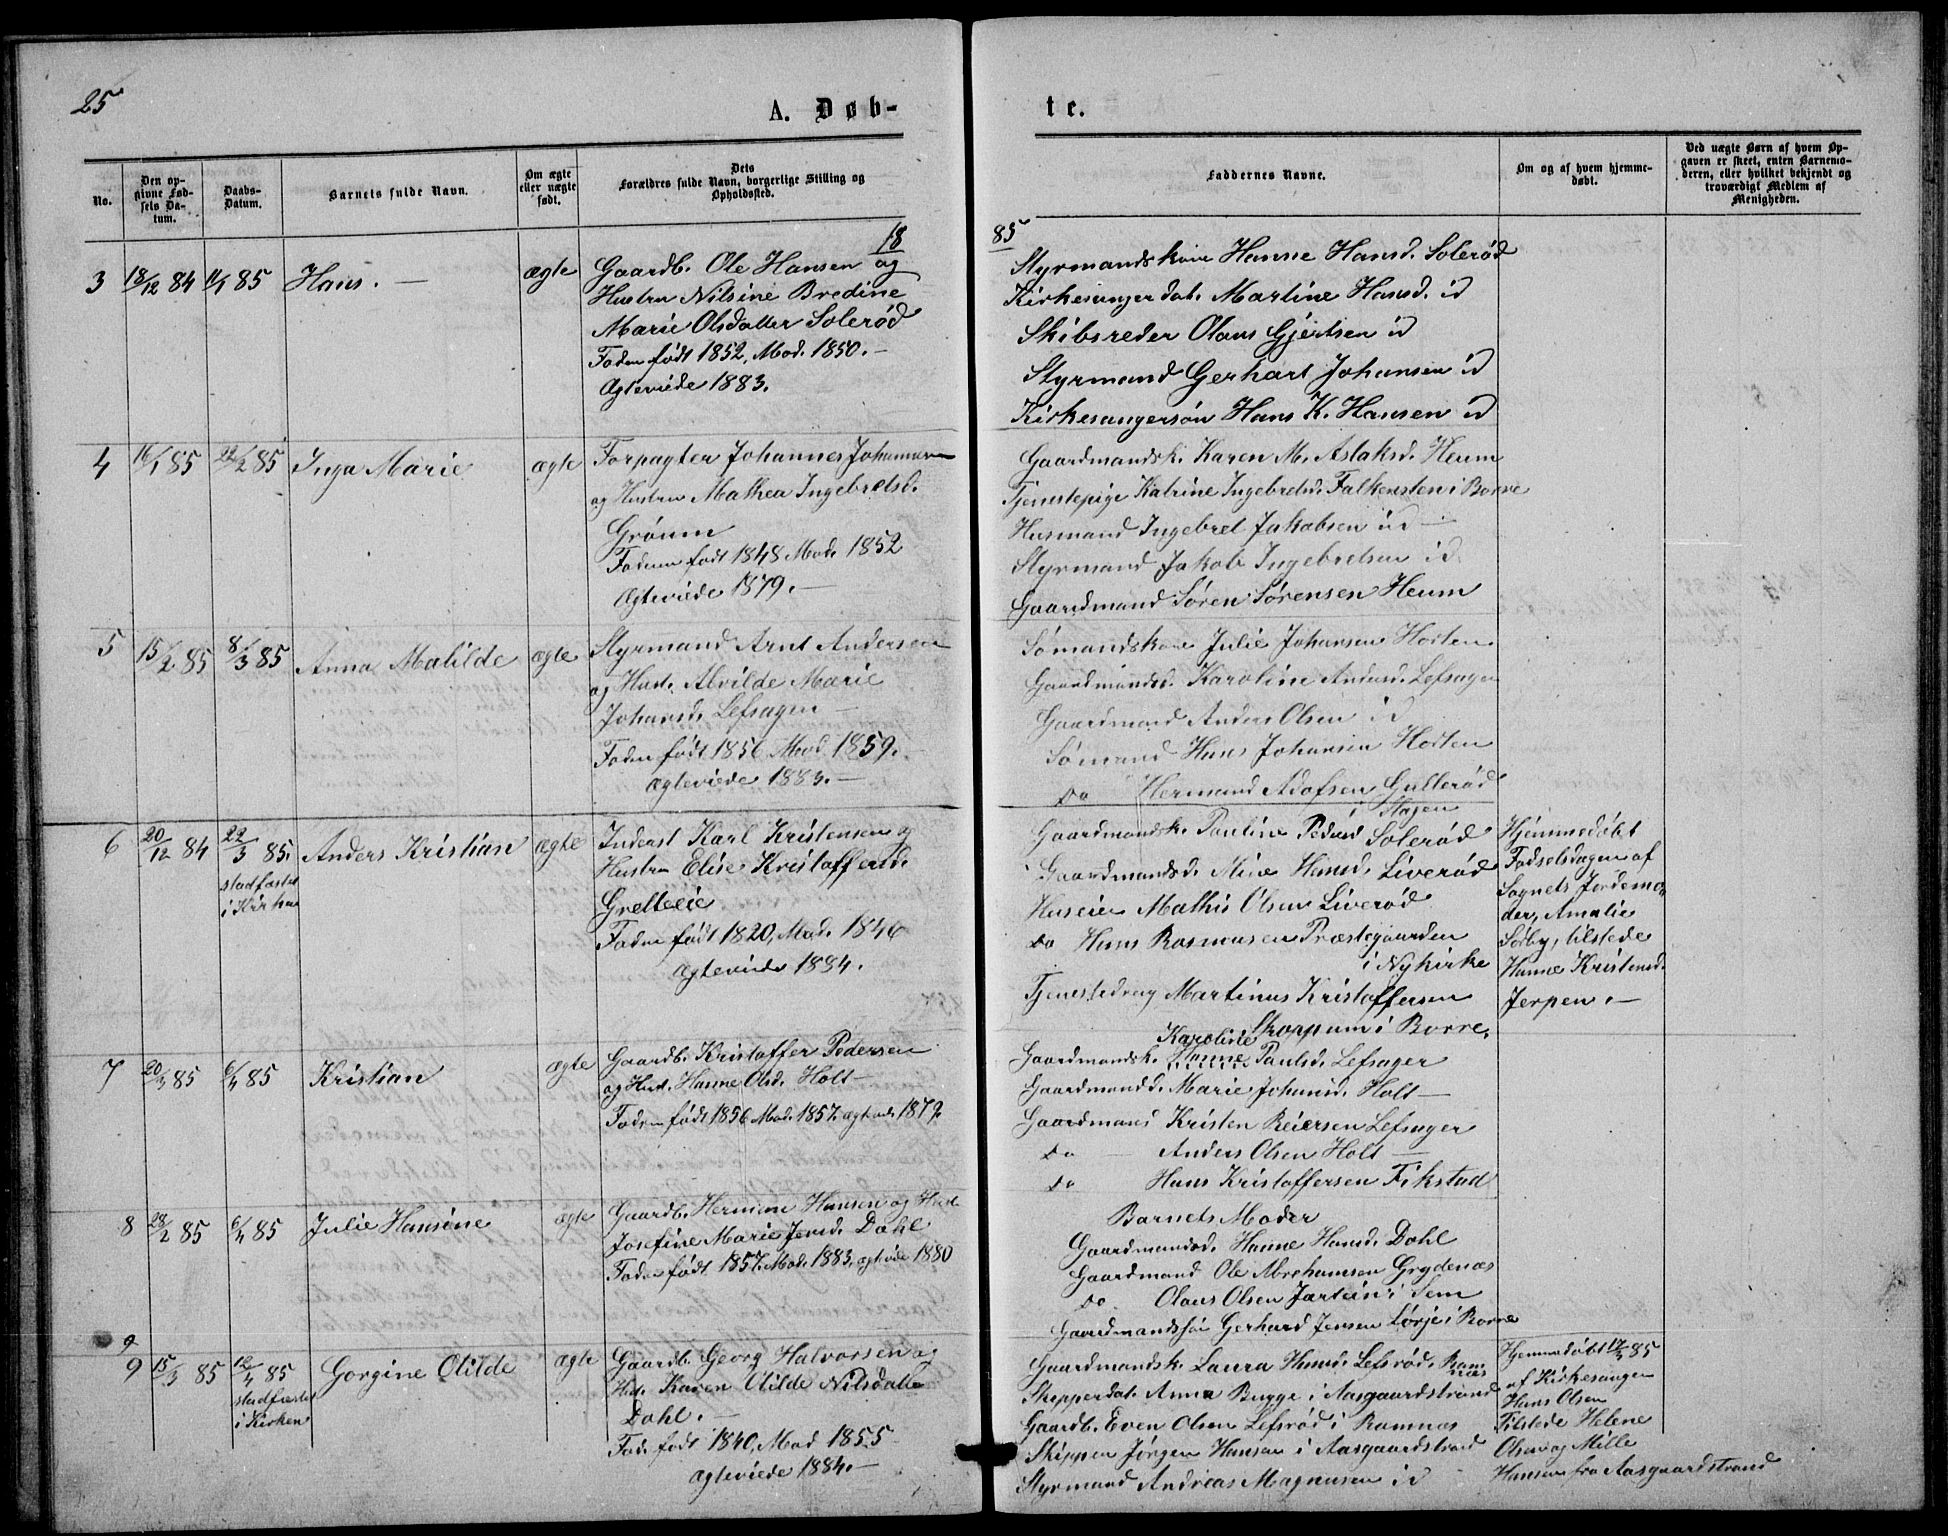 25
A. Døb-
te.
No.
Den op-
givne Fød-
sels Da-
tum.
Daabs-
Datum.
Barnets fulde Navn.
Om ægte
eller uægte
født.
Dets
Forældres fulde Navn, borgerlige Stilling og
Opholdssted.
Faddernes Navne.
Om og af hvem hjemme-
døbt.
Ved uægte Børn af hvem Op-
gaven er skeet, enten Barnemo-
deren, eller hvilket bekjendt og
troværdigt Medlem af
Menigheden.
18
85
3 18/12 84 11/1 85 Hans. — ægte
Gaardb. Ole Hansen og
Hustru Nilsine Bredine
Marie Olsdatter Solerød
Faderen født 1852, Mod. 1850. —
Ægteviede 1883.
Styrmandskone Hanne Hansd. Solerød
Kirkesangerdat. Martine Hansd. id
Skibsreder Olaus Gjertsen id
Styrmand Gerhart Johansen id
Kirkesangersøn Hans K. Hansen id
4 16/1 85 22/2 85 Inga Marie ægte
Forpagter Johannes Johannesen
og Hustru Mathea Ingebretsd.
Grøum
Faderen født 1848 Mod. 1852
Ægteviede 1879. —
Gaardmandsk. Karen M. Aslaksd. Heum
Tjenestepige Katrine Ingebretsd. Falkensten i Borre
Husmand Ingebret Jakobsen id —
Styrmand Jakob Ingebretsen id
Gaardmand Søren Sørensen Heum
5 15/2 85 8/3 85 Anna Matilde ægte
Styrmand Arnt Andersen
og Hust. Alvilde Marie
Johansd. Lefsager —
Faden født 1856 Mod. 1859. —
Ægteviede 1883. —
Sømandskone Julie Johansen Horten
Gaardmandsd. Karoline Andersd. Lefsager
Gaardmand Anders Olsen id
Sømand Hans Johansen Horten
do Hermand Adofsen Gullerød
i Slagen
6 20/12 84 22/3 85. Anders Kristian ægte
stadfæstet
i Kirken
Inderst Karl Kristensen og
Hustru Elise Kristoffersd.
Gretteeie
Faden født 1820, Mod. 1846
Ægteviede 1884.
Gaardmandsk. Pauline Pedersd Solerød
Gaardmandsd. Mina Hansd. Liverød
Huseier Mathis Olsen Liverød
do Hans Rasmussen Præstegaarden
i Nykirke
Tjenestedreng Martinus Kristoffersen
Skoppum i Borre.
Hjemmedøbt
Fødselsdagen af
Sognets Jordemo-
der, Amalie
Sørby, tilstede
Hanne Kristensd.
Jerpen. —
7 20/3 85 6/4 85 Kristian ægte
Gaardb. Kristoffer Pedersen
og Hust. Hanne Olsd. Holt —
Faderen født 1856 Mod. 1857. ægtevd. 1879.
Karoline
Gaardmandsk. Hanne Paulsd. Lefsager
Gaardmandsd. Marie Johansd. Holt —
Gaardmand Kristen Reiersen Lefsager
do — Anders Olsen Holt —
do Hans Kristoffersen Fikstad
8 28/2 85 6/4 85 Julie Hansine ægte
Gaardb. Herman Hansen og Hust.
Josefine Marie Jensd. Dahl
Faden født 1857. Mod. 1883, ægtvide 1880
Barnets Moder
Gaardmandsd. Hanne Hansd. Dahl
Gaardmand Ole Abrahamsen Grydenæs
do. Olaus Olsen Jarteini i Sem
Gaardmandssøn Gerhard Jensen Lørje i Borre
9
9 15/3 85 12/4 85 Gorgine Otilde ægte
stadfæstet
i Kirken
Gaardb. Georg Halvorsen og
Hst. Karen Otilde Nilsdatte
Dahl. —
Fad. født 1840, Mod 1855
Ægteviede 1884. —
Gaardmandsk. Laura Hansd. Lefsrød. Ram-
næs
Skipperdat. Anna Bugge i Aasgaardstrand
Gaardb. Even Olsen Lefsrød i Ramnæs
Skipper Jørgen Hansen i Aasgaardstrand
Styrmand Andreas Magnusen id
Hjemmedøbt 17/3 85
af Kirkesanger
Hans Olsen
Tilstede Helene
Olsen og Mille
Hansen fra Aasgaardstrand